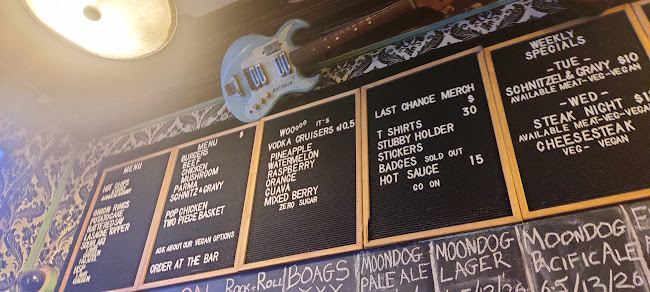 MENU
HOT CHIPS
ONION RINGS
POTATO CAKE
BATTERED SAV
MENU $
BURGERS
BEEF
CHICKEN
MUSHROOM
PARMA
SCHNITZ & GRAVY
POP CHICKEN
TWO PIECE BASKET
ASK ABOUT OUR VEGAN OPTIONS
ORDER AT THE BAR
WOOOOO IT-S
VODKA CRUISERS $10.5
PINEAPPLE
WATERMELON
RASPBERRY
ORANGE
GUAVA
MIXED BERRY
ZERO SUGAR
LAST CHANCE MERCH
$
T SHIRTS 30
STUBBY HOLDER
STICKERS
BADGES SOLD OUT
HOT SAUCE 15
GO ON
WEEKLY
SPECIALS
- TUE -
SCHNITZEL & GRAVY $10
AVAILABLE MEAT-VEG-VEGAN
- WED -
STEAK NIGHT
AVAILABLE MEAT-VEG-VEGAN
CHEESESTEAK
VEG- VEGAN
ROCK+ROLL
BOAGS
XXX
MOONDOG
PALE ALE
MOONDOG
LAGER
6.5/13/26
MOONDOG
PACIFIC ALE
6.5/13/26